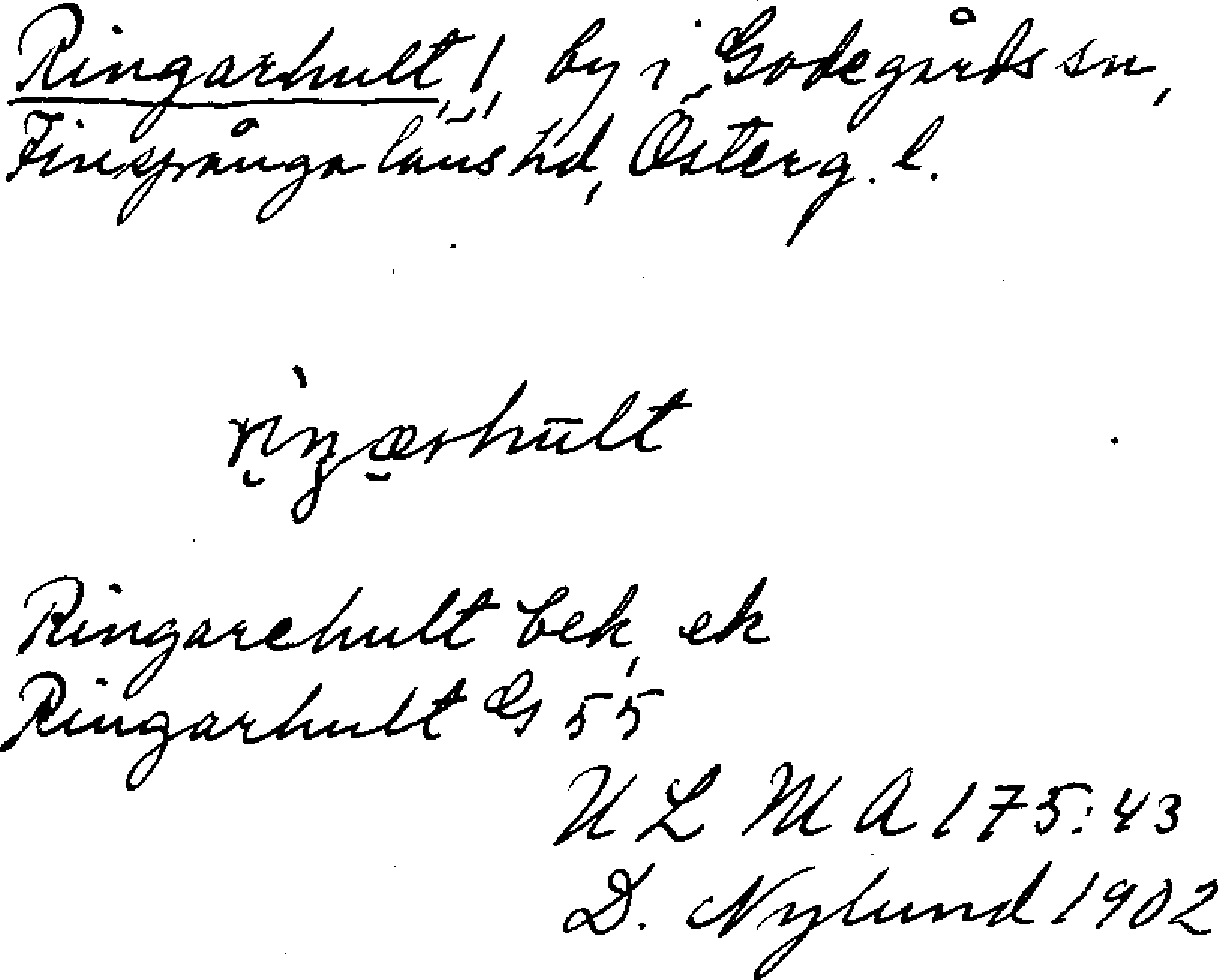 Ringarhult, 1, by i Godegårds sn,
Finspånga läns hd, Österg. l.
Ringarehult bek, ek
Ringarhult G 55
ULMA 175:43
D. Nylund 1902